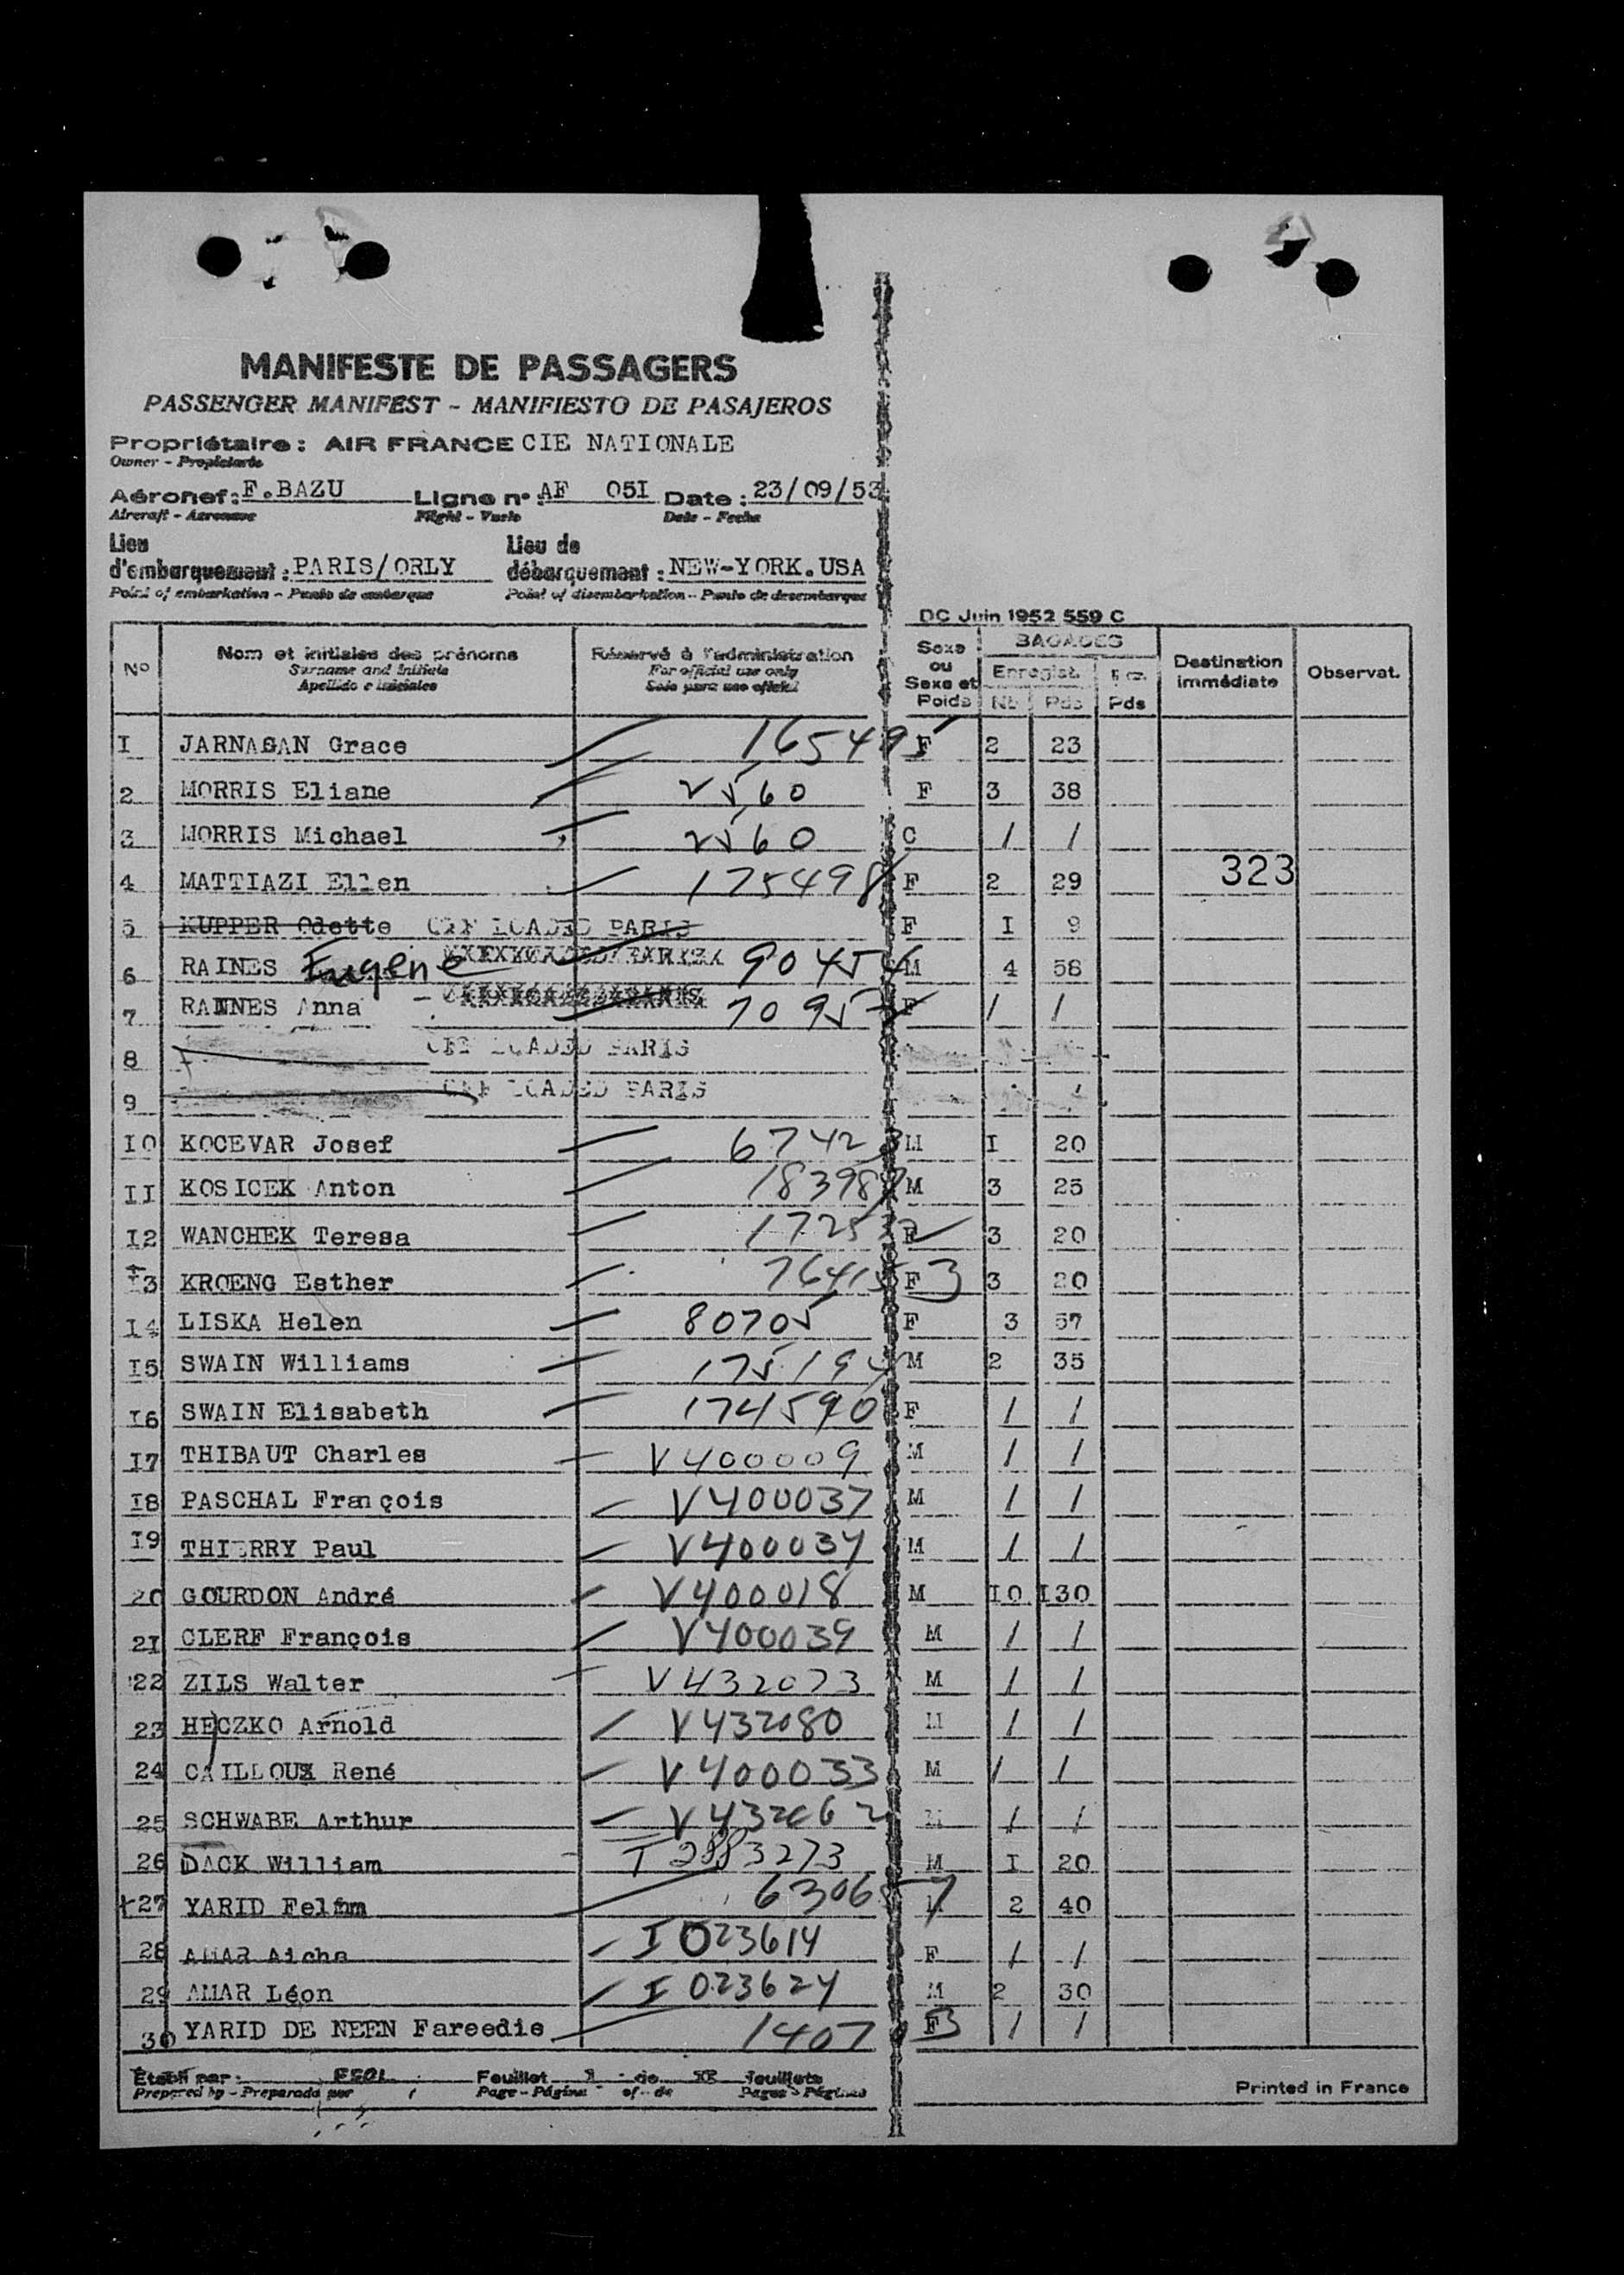 MANIFESTE DE PASSAGERS
PASSENGER MANIFEST - MANIFIESTO DE PASAJEROS
Propriétaire : AIR FRANCE CIE NATIONALE
Owner - Propietario
Aéronef : F.BAZU Ligne n° : AF 05I Date : 23/09/53
Aircraft - Aeronave Flight - Vuelo Date - Fecha
Lieu d'embarquement : PARIS/ORLY Lieu de débarquement : NEW-YORK.USA
Point of embarkation - Punto de embarque Point of disembarkation - Punto de desembarque
DC Juin 1952 559 C
N° Nom et initiales des prénoms Réservé à l'administration Sexe ou Sexe et Poids BAGAGES Destination immédiate Observat.
Surname and Initials For official use only Enregist.
Apellido e iniciales Solo para uso oficial Nb Pds Pds
I JARNAGAN Grace 165495 F 2 23
2 MORRIS Eliane 2560 F 3 38
3 MORRIS Michael 2560 C / /
4 MATTIAZI Ellen 175498 F 2 29 323
5 KUPPER Odette OFF LOADED PARIS F I 9
6 RAINES Eugene 90454 M 4 58
7 RAINES Anna F / /
8 OFF LOADED PARIS
9 OFF LOADED PARIS
I0 KOCEVAR Josef 67423 M I 20
II KOSICEK Anton M 3 25
I2 WANCHEK Teresa F 3 20
I3 KROENG Esther F 3 20
I4 LISKA Helen 80705 F 3 57
I5 SWAIN Williams 175194 M 2 35
I6 SWAIN Elisabeth 174590 F / /
I7 THIBAUT Charles V400009 M / /
I8 PASCHAL François V400037 M / /
I9 THIERRY Paul V400034 M / /
20 GOURDON André V400018 M I0 I30
2I CLERF François V400039 M / /
22 ZILS Walter V432073 M / /
23 HECZKO Arnold V432080 M / /
24 CAILLOUX René V400033 M / /
25 SCHWABE Arthur V432062 M / /
26 DACK William T2883273 M I 20
27 YARID 2 40
28 AMAR Aicha I023614 F / /
29 AMAR Léon I023624 M 2 30
30 YARID DE NEEN Fareedie F / /
Etabli par : Feuillet de feuillets
Prepared by - Preparado por Page - Página of - de Pages - Páginas
Printed in France